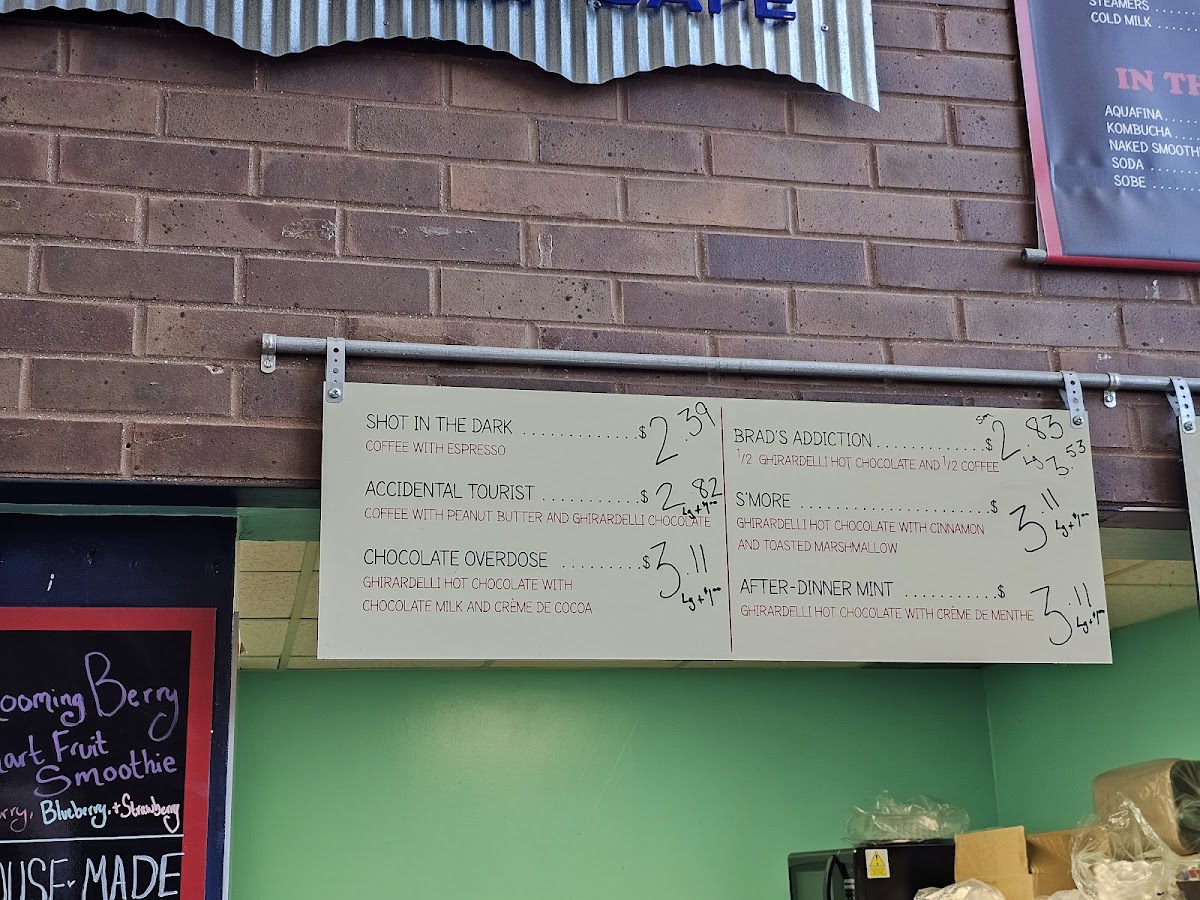 CAFE
STEAMERS ....
COLD MILK ........
IN TH
AQUAFINA....
KOMBUCHA....
NAKED SMOOTHI
SODA .......
SOBE .......
SHOT IN THE DARK ..................$ 2.39
COFFEE WITH ESPRESSO
ACCIDENTAL TOURIST ...............$ 2.82
Lg + $1.00
COFFEE WITH PEANUT BUTTER AND GHIRARDELLI CHOCOLATE
CHOCOLATE OVERDOSE ............$ 3.11
Lg + $1.00
GHIRARDELLI HOT CHOCOLATE WITH
CHOCOLATE MILK AND CRÈME DE COCOA
BRAD'S ADDICTION ................$ sm 2.83
Lg 3.53
1/2 GHIRARDELLI HOT CHOCOLATE AND 1/2 COFFEE
S'MORE .............................$ 3.11
Lg + $1.00
GHIRARDELLI HOT CHOCOLATE WITH CINNAMON
AND TOASTED MARSHMALLOW
AFTER-DINNER MINT ..............$ 3.11
Lg + $1.00
GHIRARDELLI HOT CHOCOLATE WITH CRÈME DE MENTHE
ooming Berry
art Fruit
Smoothie
rry, Blueberry, + Strawberry
OUSE-MADE